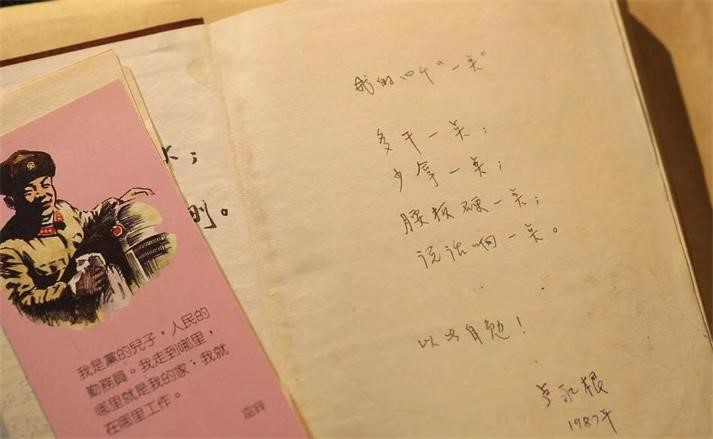 我的四个“一点”
多干一点；
少拿一点；
腰板硬一点；
说话响一点。
以此自勉！
卢永根
1987年
我是黨的兒子，人民的
勤務員。我走到哪里，
哪里就是我的家；我就
在哪里工作。
雷鋒